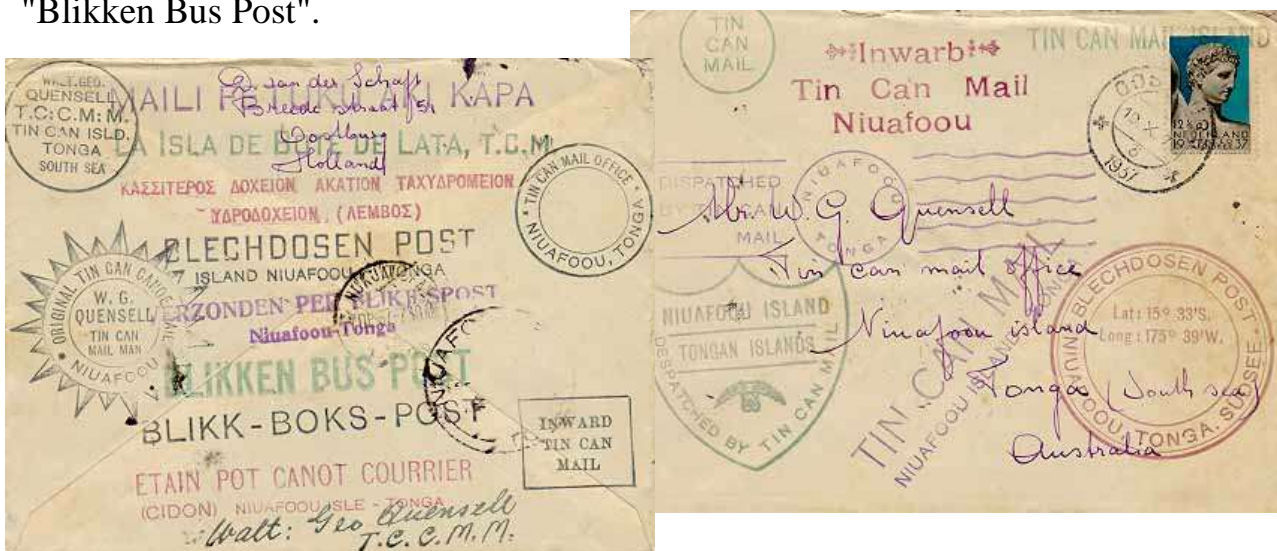 "Blikken Bus Post".
WALT. GEO.
QUENSELL
T.C:C.M:M.
TIN CAN ISLD.
TONGA
SOUTH SEA
MAILI FE LUKU AKI KAPA
van der Schaft
Breede straat 51
Oostburg
Holland
LA ISLA DE BOTE DE LATA, T.C.M
ΚΑΣΣΙΤΕΡΟΣ ΔΟΧΕΙΟΝ ΑΚΑΤΙΟΝ ΤΑΧΥΔΡΟΜΕΙΟΝ
ΥΔΡΟΔΟΧΕΙΟΝ (ΛΕΜΒΟΣ)
TIN CAN MAIL OFFICE
NIUAFOOU, TONGA
BLECHDOSEN POST
ISLAND NIUAFOOU TONGA
ORIGINAL TIN CAN CANOE MAIL
W. G.
QUENSELL
TIN CAN
MAIL MAN
NIUAFOOU
RZONDEN PER BLIKK SPOST
Niuafoou-Tonga
NUKUALOFA
BLIKKEN BUS POST
NIUAFO
BLIKK-BOKS-POST
INWARD
TIN CAN
MAIL
ETAIN POT CANOT COURRIER
(CIDON) NIUAFOOU ISLE - TONGA
Walt: Geo Quensell
T.C.C.M.M.
TIN
CAN
MAIL
Inwarb
Tin Can Mail
Niuafoou
TIN CAN MAIL ISLAND
OOS
1937
12½ ct
NEDERLAND
1937
DISPATCHED
BY TIN CAN
MAIL
NIUAFOOU
TONGA
Mr. W. G. Quensell
Tin can mail office
Niuafoou island
Tonga (South sea)
Australia
NIUAFOOU ISLAND
TONGAN ISLANDS
DESPATCHED BY TIN CAN MAIL
TIN CAN MAIL
NIUAFOOU ISLAND TONGA
BLECHDOSEN POST
Lat: 15º 33'S.
Long: 175º 39'W.
NIUAFOOU, TONGA. SÜDSEE